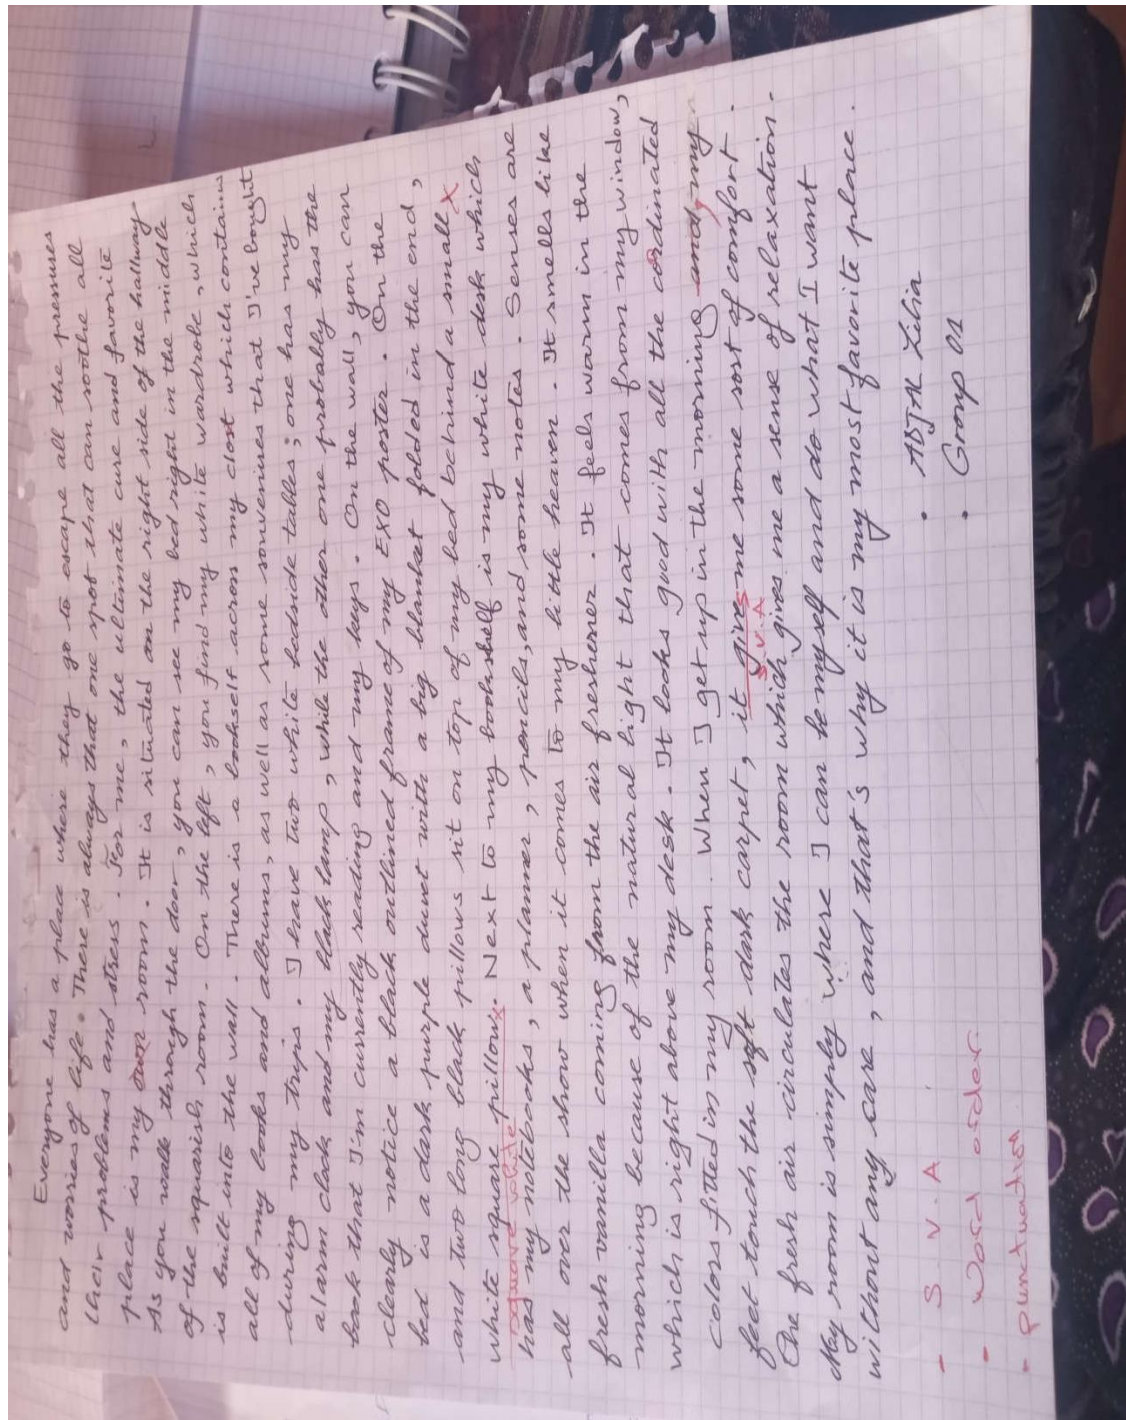 Everyone has a place where they go to escape all the pressures
and worries of life. There is always that one spot that can soothe all
their problems and stress. For me, the ultimate cure and favorite
place is my own room. It is situated on the right side of the hallway
As you walk through the door, you can see my bed right in the middle
of the squarish room. On the left, you find my white wardrobe, which
is built into the wall. There is a bookself across my closet which contains
all of my books and albums, as well as some souvenires that I've bought
during my trips. I have two white bedside tables; one has my
alarm clock and my black lamp, while the other one probably has the
book that I'm currently reading and my keys. On the wall, you can
clearly notice a black outlined frame of my EXO poster. On the
bed is a dark purple duvet with a big blanket folded in the end,
and two long black pillows sit on top of my bed behind a small X
white square pillow. Next to my bookshelf is my white desk which
square white
has my notebooks, a planner, pencils, and some notes. Senses are
all over the show when it comes to my little heaven. It smells like
fresh vanilla coming from the air freshener. It feels warm in the
morning because of the natural light that comes from my window,
which is right above my desk. It looks good with all the cordinated
colors fitted in my room. When I get up in the morning and my
feet touch the soft dark carpet, it gives me some sort of comfort.
S.V.A
The fresh air circulates the room which gives me a sense of relaxation.
My room is simply where I can be myself and do what I want
without any care, and that's why it is my most favorite place.
• ADJAL Lilia
• Group 01
- S.V.A
- Word order
- punctuation